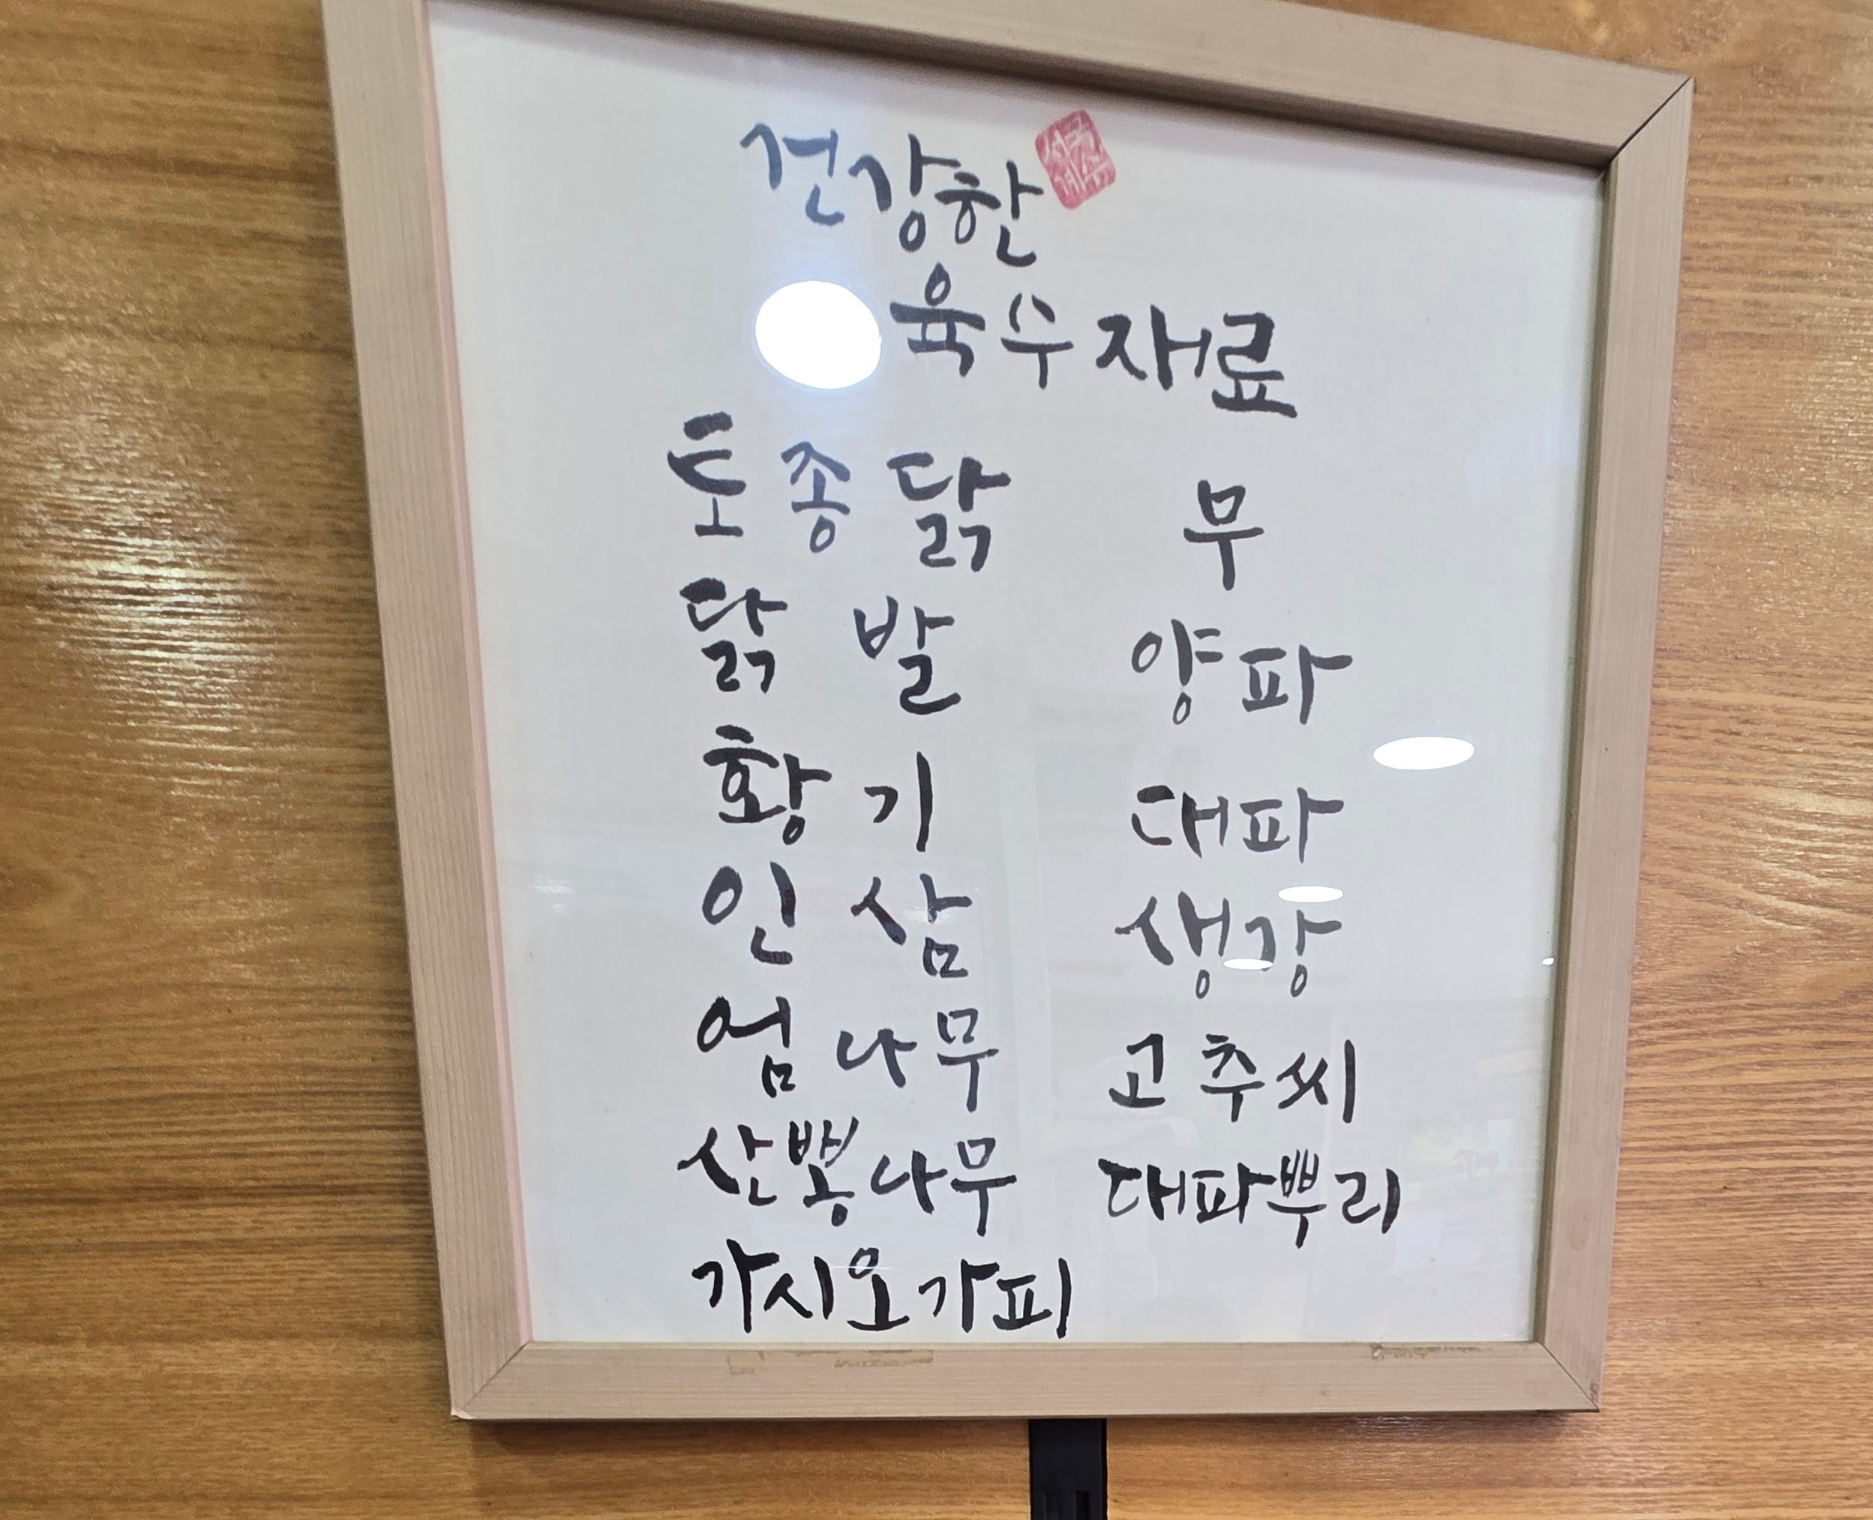 건강한
육수 재료
토종닭
닭발
황기
인삼
엄나무
산뽕나무
가시오가피
무
양파
대파
생강
고추씨
대파뿌리